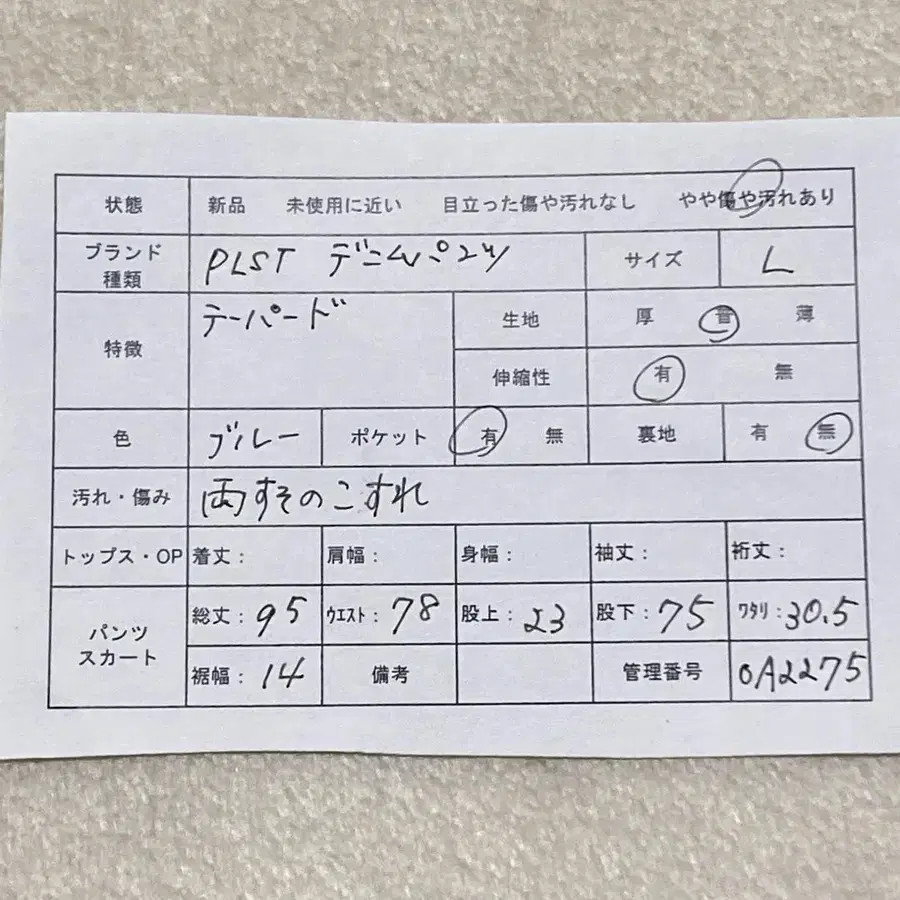 状態 新品 未使用に近い 目立った傷や汚れなし やや傷や汚れあり
ブランド 種類 PLST デニムパンツ サイズ L
特徴 テーパード 生地 厚 普 薄
伸縮性 有 無
色 ブルー ポケット 有 無 裏地 有 無
汚れ・傷み 両すそのこすれ
トップス・OP 着丈: 肩幅: 身幅: 袖丈: 裄丈:
パンツ スカート 総丈: 95 ウエスト: 78 股上: 23 股下: 75 ワタリ: 30.5
裾幅: 14 備考 管理番号 0A2275